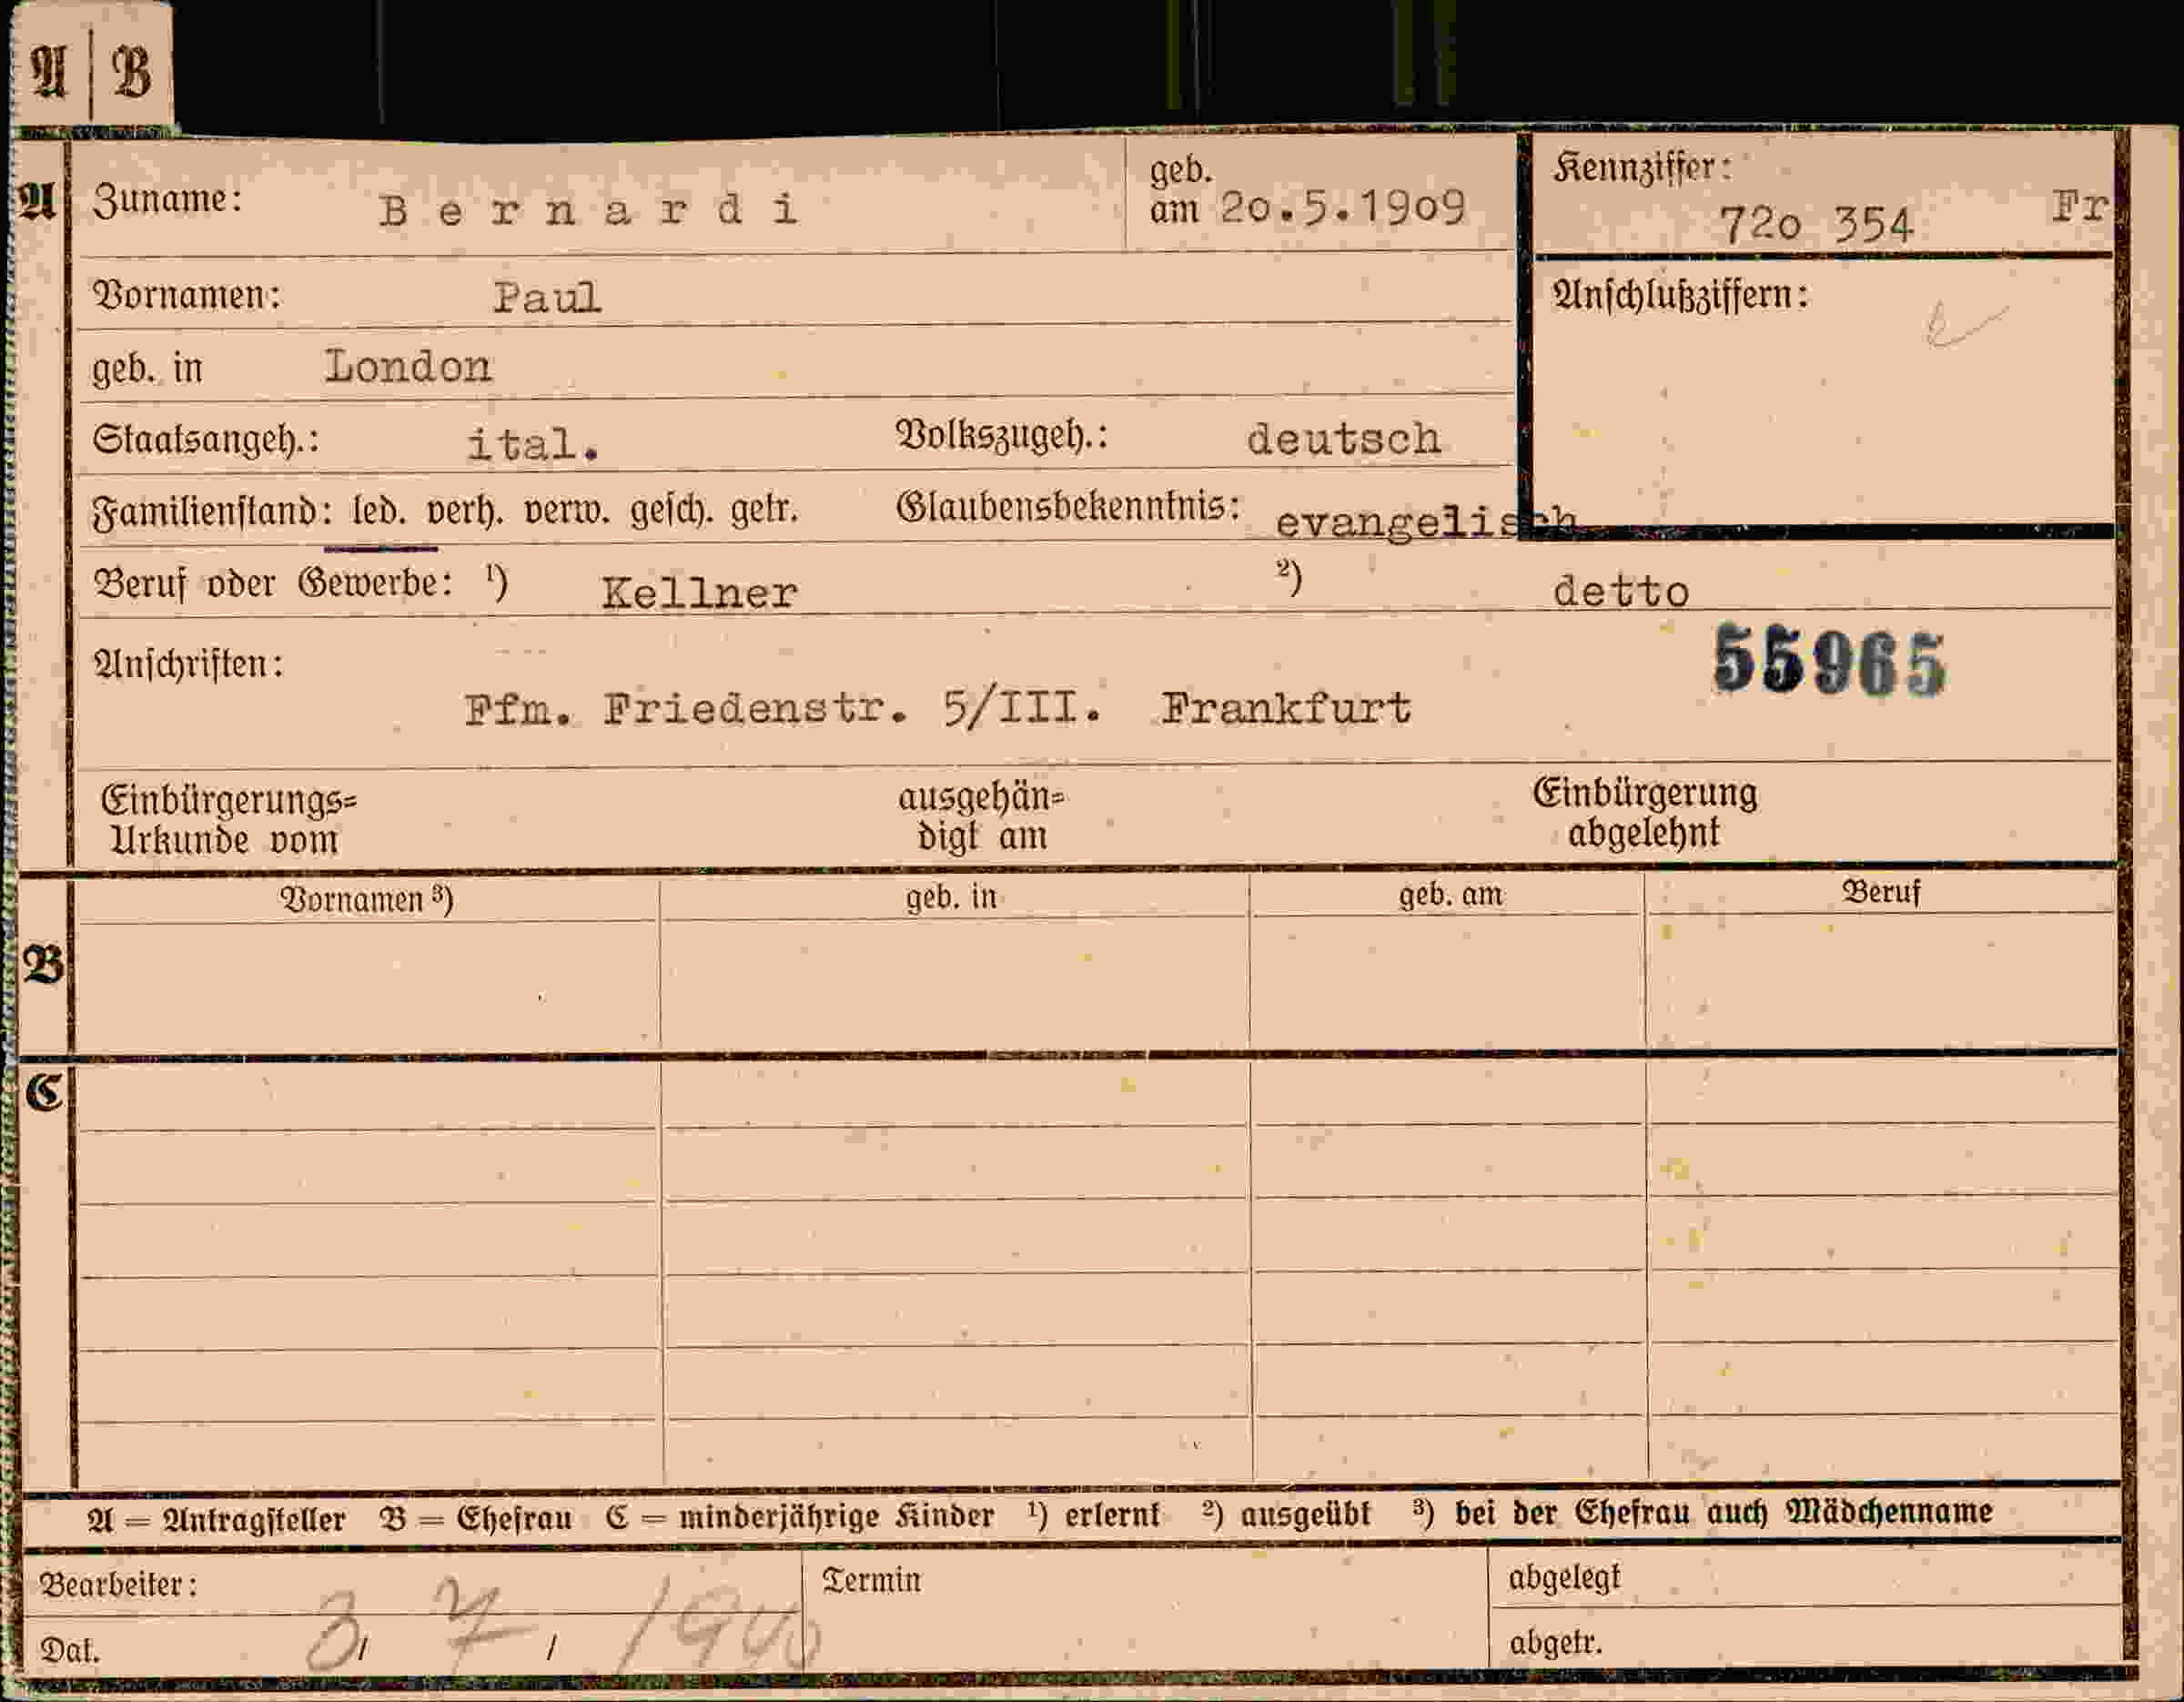 A | B
A Zuname: Bernardi geb. am 20.5.1909 Kennziffer: 720 354 Fr
Vornamen: Paul Anschlußziffern:
geb. in London
Staatsangeh.: ital. Volkszugeh.: deutsch
Familienstand: led. verh. verw. gesch. getr. Glaubensbekenntnis: evangelisch
Beruf oder Gewerbe: ¹) Kellner ²) detto
55965
Anschriften:
Ffm. Friedenstr. 5/III. Frankfurt
Einbürgerungs= ausgehän= Einbürgerung
Urkunde vom digt am abgelehnt
Vornamen ³) geb. in geb. am Beruf
B
C
A = Antragsteller B = Ehefrau C = minderjährige Kinder ¹) erlernt ²) ausgeübt ³) bei der Ehefrau auch Mädchenname
Bearbeiter: Termin abgelegt
Dat. 3/ 7/ 1940 abgetr.